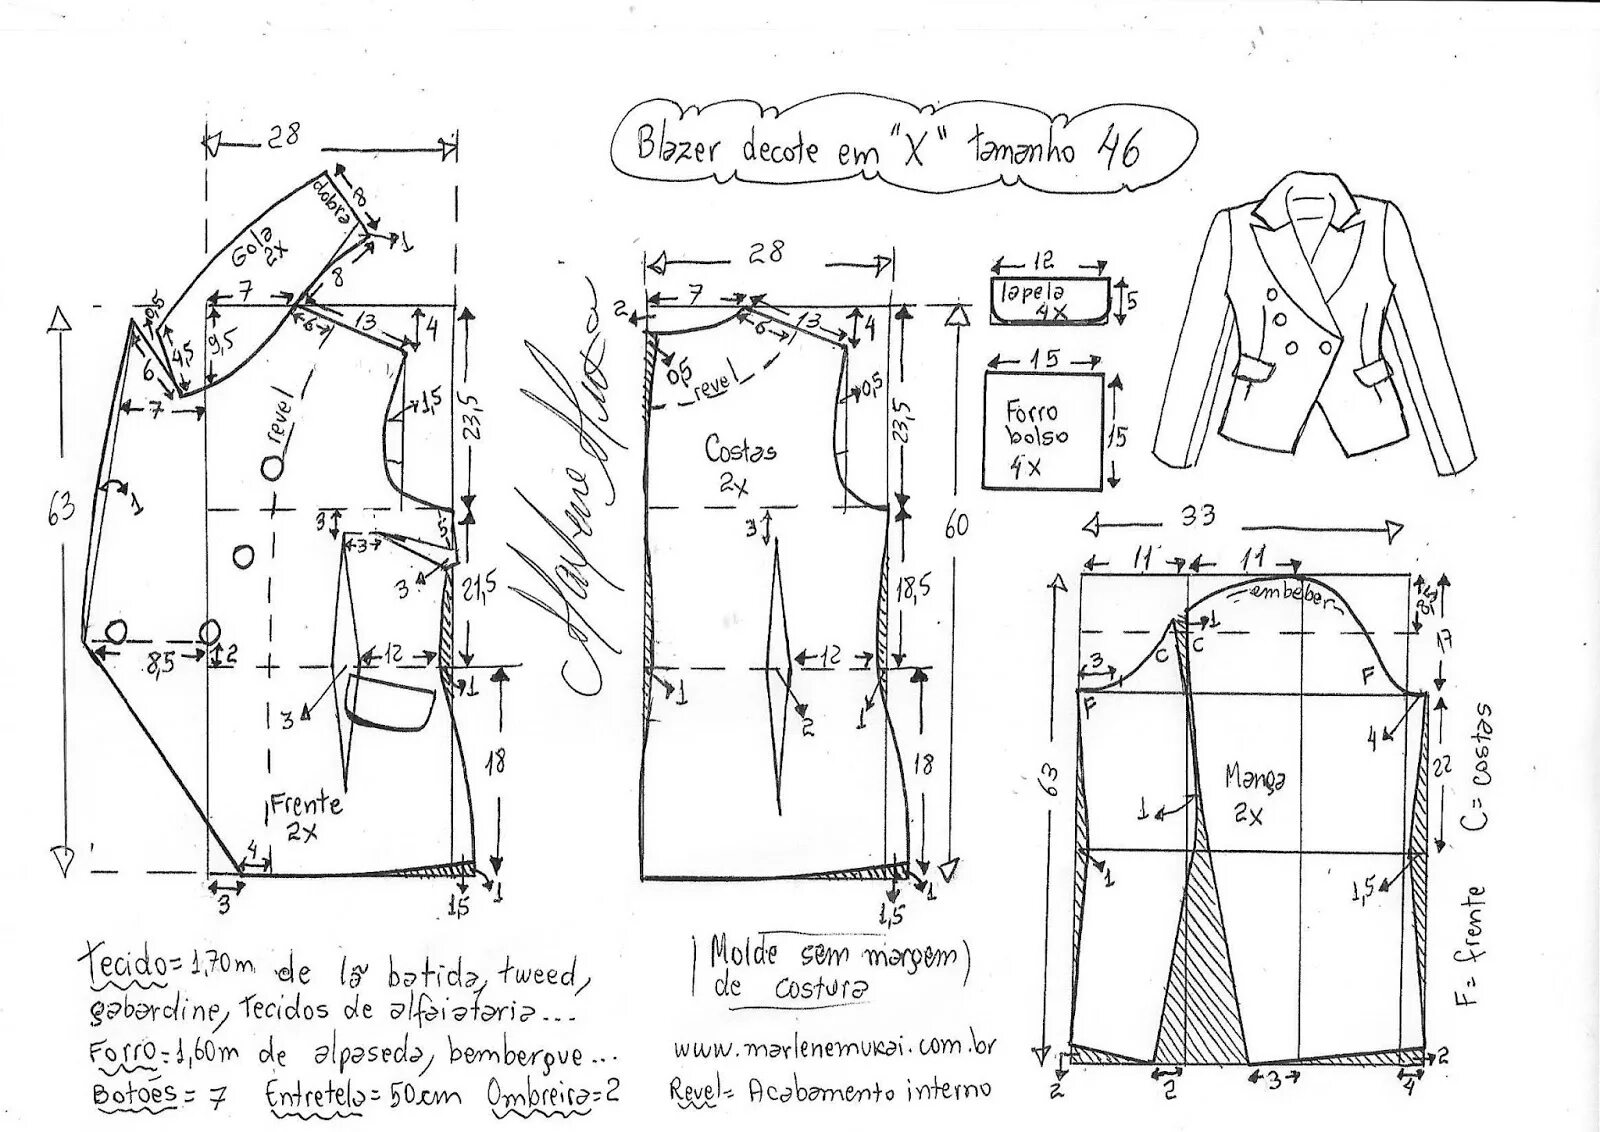 Blazer decote em "X" tamanho 46
28
dobra
8
1
Gola
2x
8
7
0,5
4,5
9,5
6
7
6
13
4
revel
1,5
23,5
63
1
3
3
5
3
21,5
8,5
2
12
3
1
18
Frente
2x
4
3
1,5
1
Marlene Mukai
28
2
7
6
13
4
0,5
revel
0,5
23,5
Costas
2x
60
3
18,5
12
1
2
1
18
1,5
1
12
lapela
4x
5
15
Forro
bolso
4x
15
33
11
11
embeber
8,5
17
1
3
C
C
F
F
4
63
22
Manga
2x
1
1
1,5
2
2
3
4
2
C= costas
F= frente
Tecido= 1,70m de lã batida, tweed,
gabardine, tecidos de alfaiataria...
Forro= 1,60m de alpaseda, bembergue...
Botões= 7 Entretela= 50cm Ombreira=2
Molde sem margem
de costura
www.marlenemukai.com.br
Revel= Acabamento interno